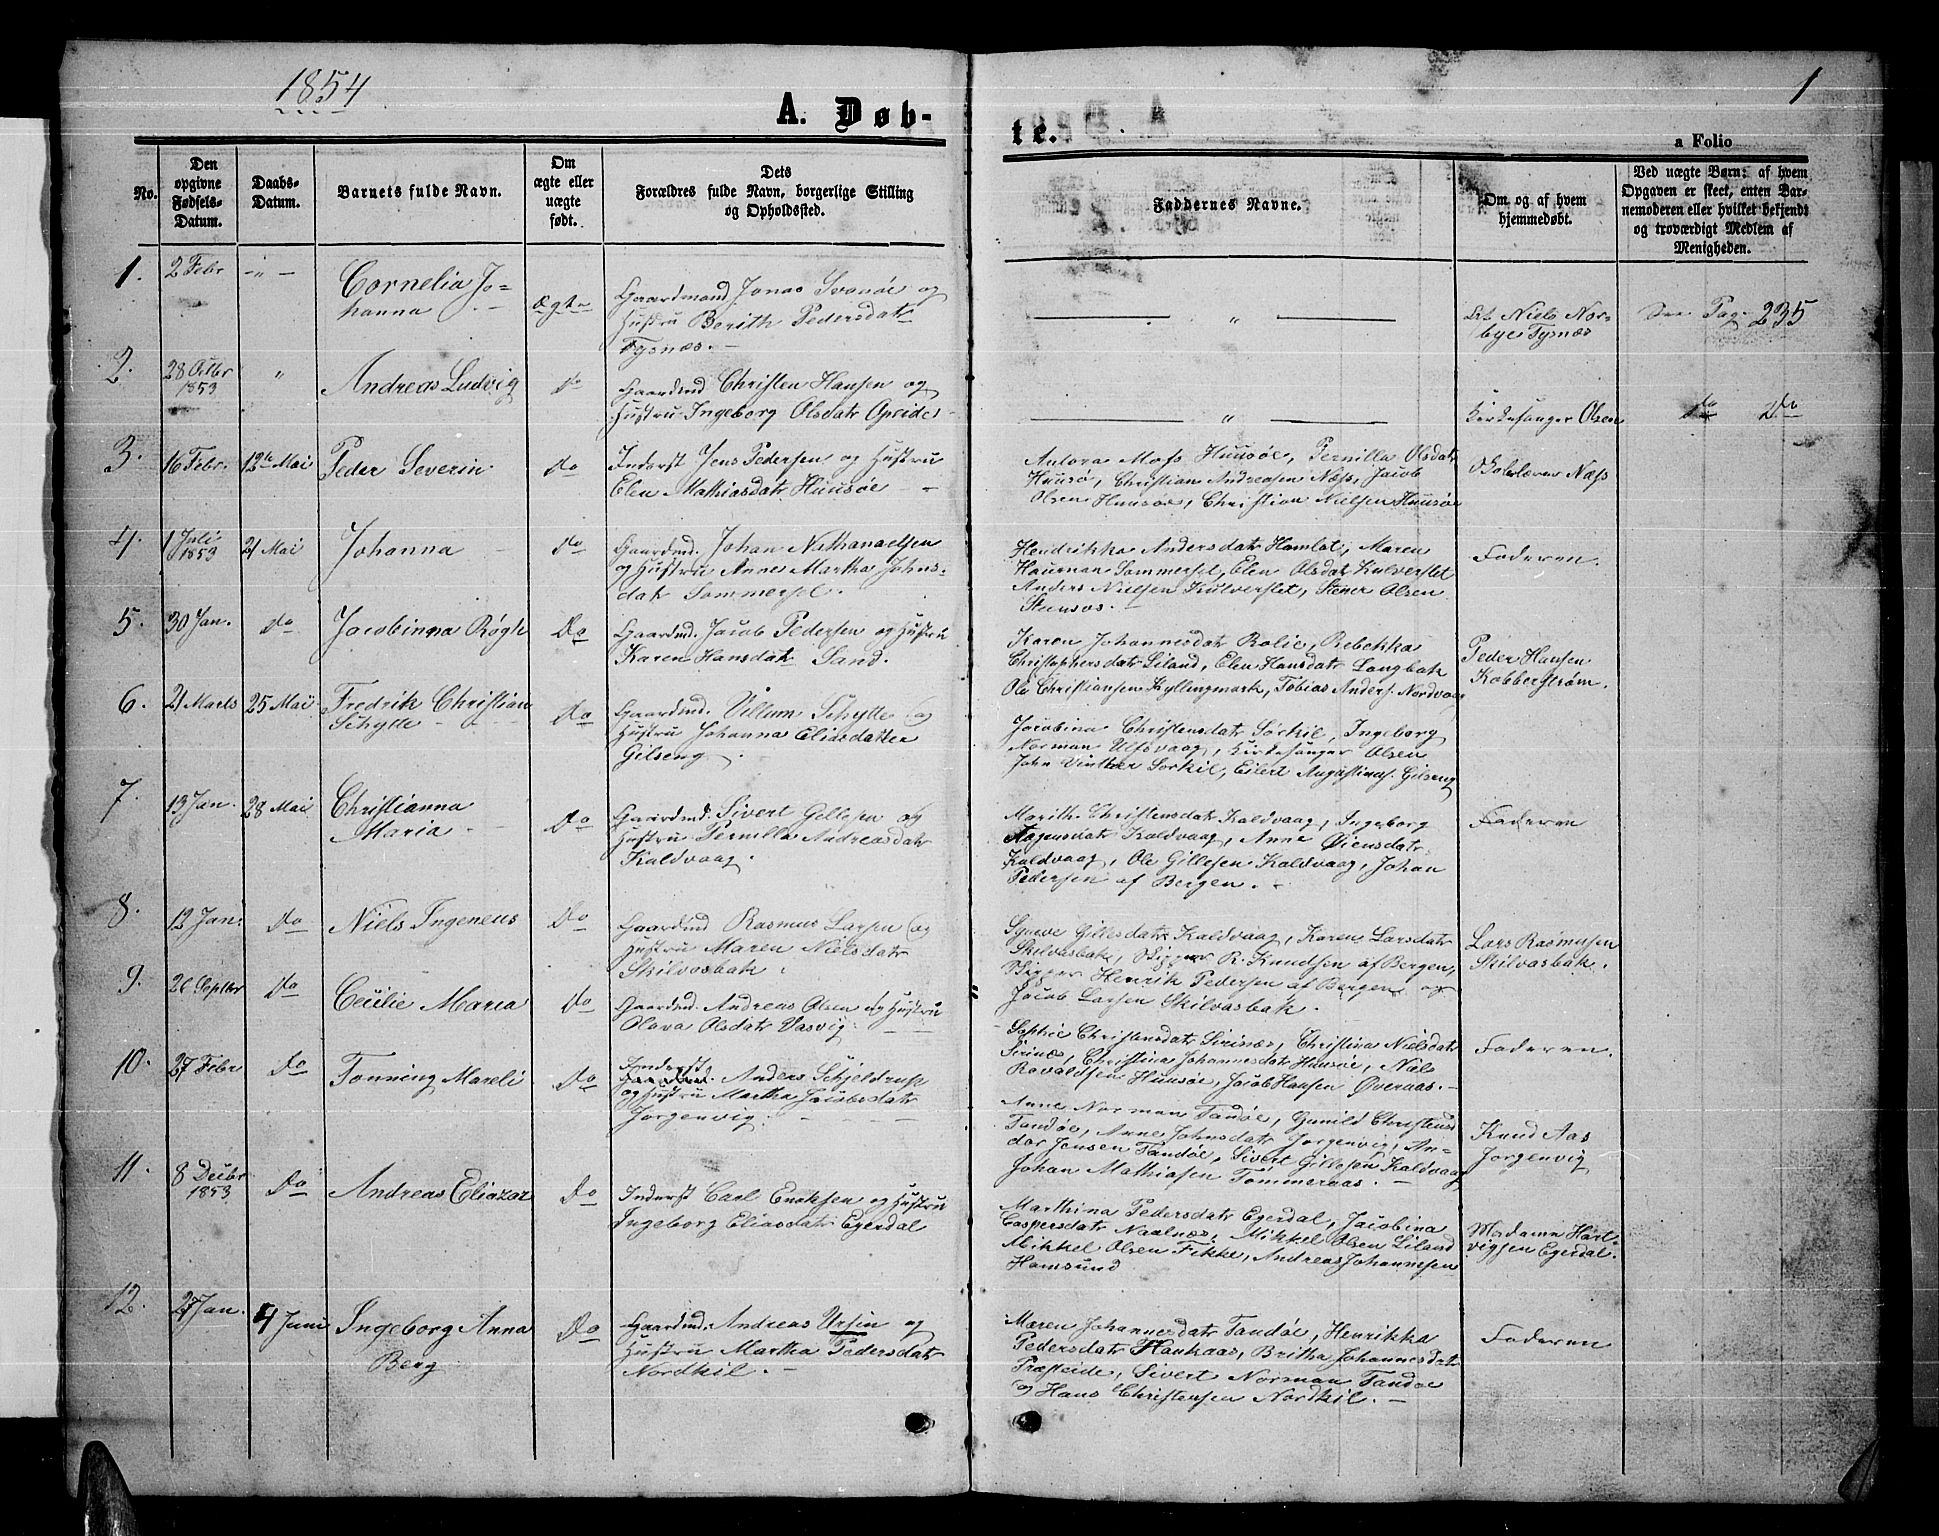 1854
1
A. Døb-
te.
a Folio
No.
Den
opgivne
Fødsels-
Datum.
Daabs-
Datum.
Barnets fulde Navn.
Om
ægte eller
uægte
født.
Dets
Forældres fulde Navn, borgerlige Stilling
og Opholdssted.
Faddernes Navne.
Om og af hvem
hjemmedøbt.
Ved uægte Børn: af hvem
Opgaven er skeet, enten Bar-
nemoderen eller hvilket bekjendt
og troværdigt Medlem af
Menigheden.
1.
2 Febr
- " -
Cornelia Jo-
hanna
Ægte
Gaardmand Jonas Svonøe og
Hustru Berith Pedersdatr
Tysnæs. -
"
Niels Nor-
bye Tysnæs
Pag. 235
2.
28 Octbr
1853
"
Andreas Ludvig
do
Gaardmd Christen Hansen og
Hustru Ingeborg Olsdatr Opeide -
"
Kirkesanger Olsen
do Do
3.
16 Febr.
12te Mai
Peder Severin
do
Inderst Jens Pedersen og Hustru
Elen Mathiasdatr Huusøe -
Moss Huusøe, Pernilla Olsdatr
Huusø, Christian Andreasen Næss, Jacob
Olsen Huusøe, Christian Nielsen Huusøe
Skolelærer Næss
4.
1 Juli
1853
21 Mai
Johanna
do
Gaardmd. Johan Nathanaelsen
og Hustru Anne Martha Johns-
datr Sommersel.
Hendrikka Andersdatr Hamlot, Maren
Sommersel, Elen Olsdatr Kulverslet
Anders Nielsen Kulverslet, Stener Olsen
5.
30 Jan.
do
Jacobinna Røgh
Do
Gaardmd. Jacob Pedersen og Hustru
Karen Hansdatr Sand.
Karen Johannesdatr Rolie, Rebekka
Christophersdatr Liland, Elen Hansdatr Langbak
Ole Christiansen Kyllingmark, Tobias Anders. Nordvaag
Peder Hansen
Kobberstrøm.
6.
21 Marts
25 Mai
Fredrik Christian
Schytte
Do
Gaardmd. Villum Schytte og
Hustru Johanna Eliasdatter
Gilseng.
Jacobina Christensdatr Sørkil, Ingeborg
Norman Ulfsvaag, Kirkesanger Olsen
John Vinther Sørkil, Eilert Augustinus. Gilseng
7.
13 Jan.
28 Mai
Christianna
Maria.
Do
Gaardmd. Sivert Gillesen og
Hustru Pernilla Andreasdatr
Kaldvaag.
Marith Christensdatr Kaldvaag, Ingeborg
Aagensdatr Kaldvaag, Anne Øiensdatr
Kaldvaag, Ole Gillesen Kaldvaag, Johan
Pedersen af Bergen. -
Faderen
8.
12 Jan.
Do
Niels Ingeneus
Do
Gaardmd Rasmus Larsen og
Hustru Maren Nielsdatr
Skilvasbak.
Gillesdatr Kaldvaag, Karen Larsdatr
Skilvasbak, Skipper R. Knudsen af Bergen,
Skipper Henrik Pedersen af Bergen og
Jacob Larsen Skilvasbak.
Lars Rasmusen
Skilvasbak.
9.
26 Septbr
Do
Cecilie Maria
Do
Gaardmd. Andreas Olsen og Hustru
Olava Olsdatr Vasvig.
Sophie Christensdatr Sirinæs, Christina Nielsdatr
Sirinæs, Christina Johannesdatr Huusøe, Niels
Ravaldsen Huusøe, Jacob Hansen Øveraas. -
Faderen.
10.
27 Febr
Do
Tonning Mareli
Do
Inderst
Gaardmd. Anders Schjeldrup
og Hustru Martha Jacobsdatr
Jorgenvig.
Anne Norman Tandøe, Gunild Christensd
Tandøe, Anne Johnsdatr Jorgenvig, An-
der Jensen Tandøe, Sivert Gillesen Kaldvaag
Johan Mathiasen Tømmeraas. -
Knud Aas
Jorgenvig
11.
8 Decbr
1853
Do
Andreas Eliazar
Do
Inderst Carl Enoksen og Hustru
Ingeborg Eliasdatr Egerdal
Marthina Pedersdatr Egerdal, Jacobina
Caspersdatr Naalnæs, Mikkel Olsen Liland
Mikkel Olsen Fikke, Andreas Johannesen
Hamsund
Madame Hart-
vigsen Egerdal.
12.
27 Jan.
4 Juni
Ingeborg Anna
Berg
Do
Gaardmd. Andreas Ursin og
Hustru Martha Pedersdatr
Nordkil. -
Maren Johannesdatr Tandøe, Henrikka
Pedersdatr Haukaas, Britha Johannesdatr
Præsteide, Sivert Norman Tandøe
og Hans Christensen Nordkil. -
Faderen